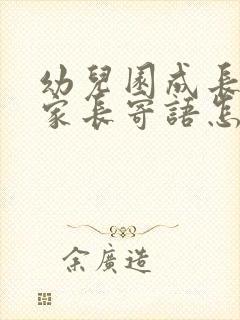 幼兒園成長
家長寄語怎
余廣造